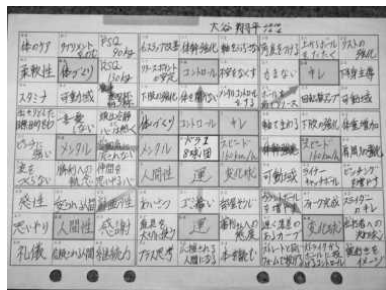 大谷 翔平
体のケア サプリメントをのむ FSQ 90kg インステップ改善 体幹強化 軸をぶらさない 角度をつける 上からボールをたたく リストの強化
柔軟性 体づくり RSQ 130kg リリースポイントの安定 コントロール 不安をなくす 力まない キレ 下半身主導
スタミナ 可動域 下肢の強化 体を開かない メンタルコントロールをする ボールを前でリリース 回転数アップ 可動域
はっきりとした目標、目的をもつ 一喜一憂しない 頭は冷静に心は熱く 体づくり コントロール キレ 軸でまわる 下肢の強化 体重増加
ピンチに強い メンタル メンタル ドラ1 8球団 スピード160km/h 体幹強化 スピード160km/h 肩周りの強化
波をつくらない 勝利への執念 仲間を思いやる心 人間性 運 変化球 可動域 ライナーキャッチボール ピッチングを増やす
感性 愛される人間 計画性 あいさつ ゴミ拾い 部屋そうじ カウントボールを増やす フォーク完成 スライダーのキレ
思いやり 人間性 感謝 道具を大切に使う 運 審判さんへの態度 遅く落差のあるカーブ 変化球 左打者への決め球
礼儀 信頼される人間 継続力 プラス思考 応援される人間になる 本を読む ストレートと同じフォームで投げる ストライクからボールに投げるコントロール 奥行きをイメージ